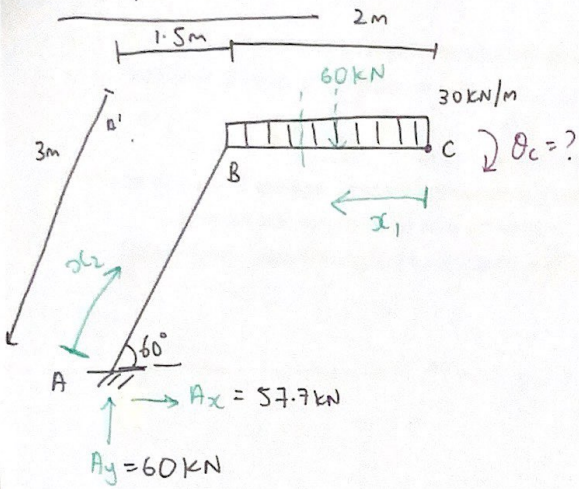 2m
1.5m
60KN
30KN/m
3m
B
C
θc=?
x₁
x₂
60°
A
Ax = 57.7KN
Ay=60KN